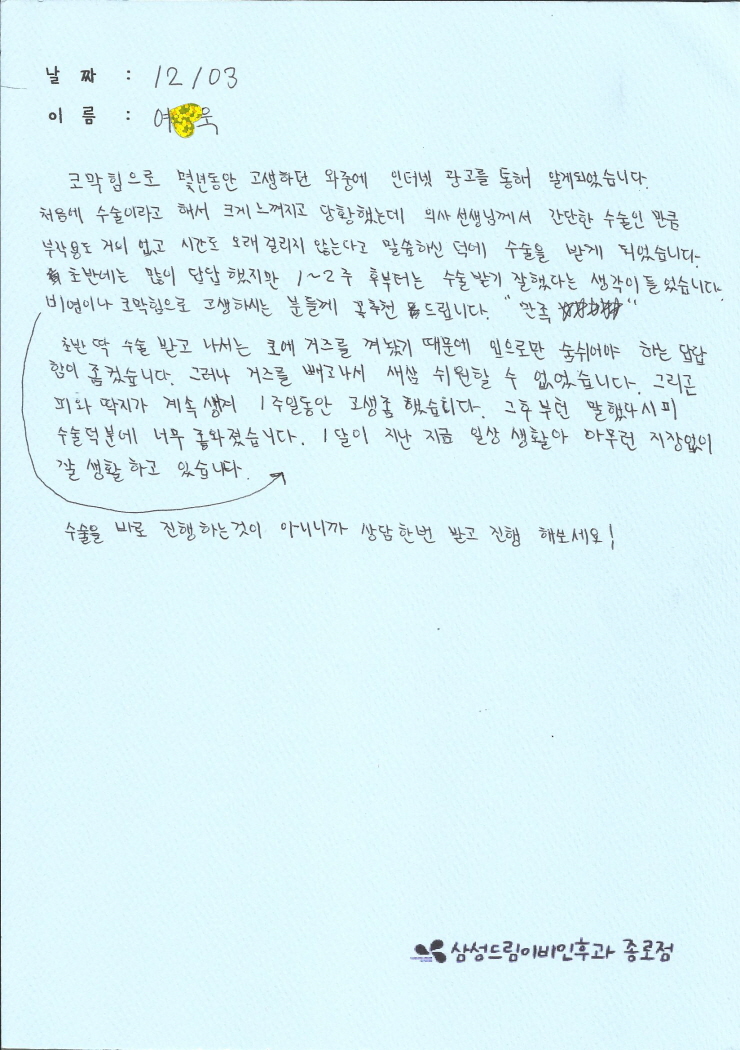 날 짜 : 12/03
이 름 : 여 욱
코막힘으로 몇년동안 고생하던 와중에 인터넷 광고를 통해 알게되었습니다.
처음에 수술이라고 해서 크게 느껴지고 당황했는데 의사 선생님께서 간단한 수술인 만큼
부작용도 거의 없고 시간도 오래 걸리지 않는다고 말씀하신 덕에 수술을 받게 되었습니다.
초반에는 많이 답답했지만 1~2주 후부터는 수술받기 잘했다는 생각이 들었습니다.
비염이나 코막힘으로 고생하시는 분들께 꼭추천 드립니다. "만족 "
초반 딱 수술 받고 나서는 코에 거즈를 껴놨기 때문에 입으로만 숨쉬어야 하는 답답
함이 좀 컸습니다. 그러나 거즈를 빼고나서 세상 쉬원할 수 없었습니다. 그리곤
피와 딱지가 계속 생겨 1주일동안 고생좀 했습니다. 그후부턴 말했다시피
수술덕분에 너무 좋와졌습니다. 1달이 지난 지금 일상 생활아 아무런 지장없이
잘 생활 하고 있습니다.
수술을 바로 진행하는것이 아니니까 상담 한번 받고 진행 해보세요!
삼성드림이비인후과 종로점